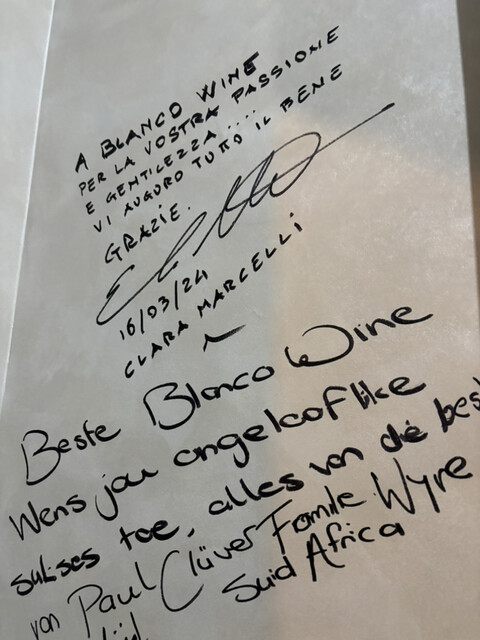 A BLANCO WINE
PER LA VOSTRA PASSIONE
E GENTILEZZA....
VI AUGURO TUTTO IL BENE
GRAZIE.
16/03/24
CLARA MARCELLI
Beste Blanco Wine
Wens jou ongelooflike
sukses toe, alles van die bes
van Paul Clüver Familie Wyne
Suid Africa